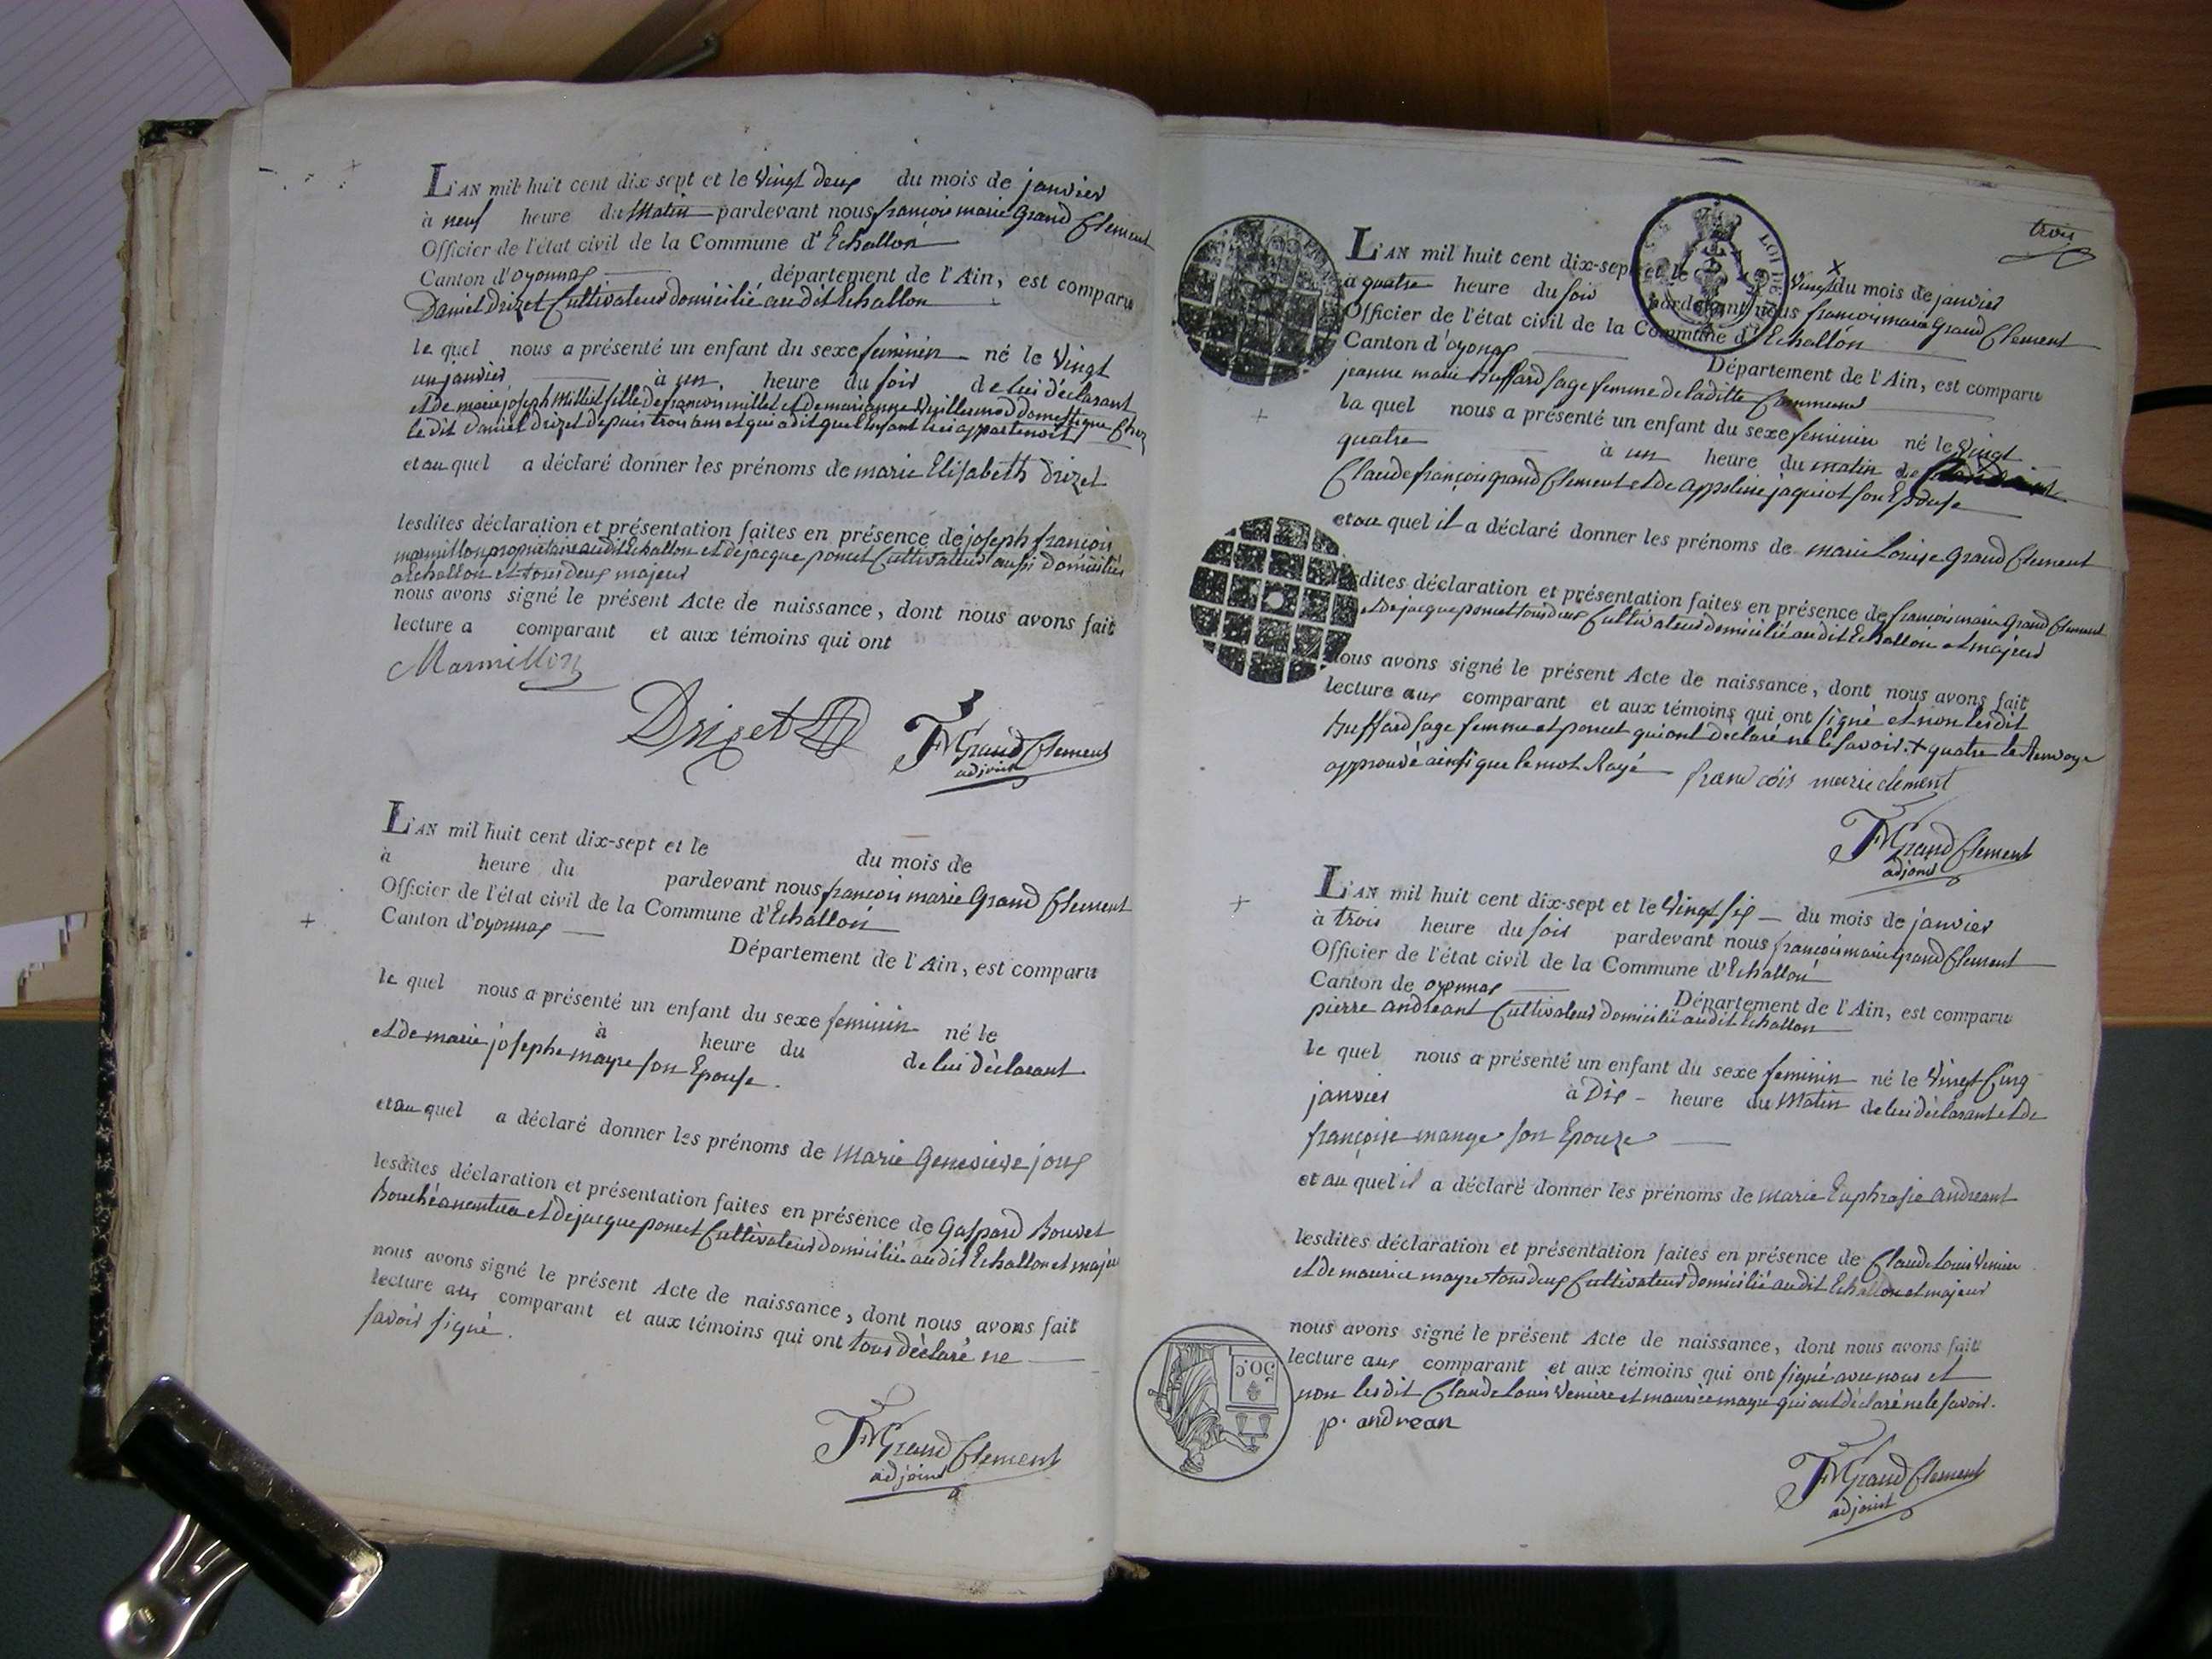 L'AN mil huit cent dix-sept et le vingt deux du mois de janvier
à neuf heure du Matin pardevant nous françois marie Grand Clement
Officier de l'état civil de la Commune d'Echallon
Canton d'oyonnax département de l'Ain, est comparu
Daniel Drizet Cultivateur domicilié audit Echallon
le quel nous a présenté un enfant du sexe feminin né le Vingt
un janvier à un heure du soir de lui déclarant
et de marie joseph Millet fille de françois millet et de marianne Vuillermod domestique chez
le dit Daniel drizet depuis trois ans et qui a dit que l'enfant lui appartenoit
et au quel a déclaré donner les prénoms de marie Elisabeth Drizet
lesdites déclaration et présentation faites en présence de joseph françois
marmillon propriétaire audit Echallon et de jacque poncet Cultivateur aussi domicilié
a Echallon et tous deux majeur
nous avons signé le présent Acte de naissance, dont nous avons fait
lecture a comparant et aux témoins qui ont
Marmillon
Drizet
FM Grand Clement
adjoint
L'AN mil huit cent dix-sept et le du mois de
à heure du pardevant nous françois marie Grand Clement
Officier de l'état civil de la Commune d'Echallon
Canton d'oyonnax Département de l'Ain, est comparu
le quel nous a présenté un enfant du sexe feminin né le
à heure du de lui déclarant
et de marie josephe mayre son Epouse.
et au quel a déclaré donner les prénoms de Marie Genevieve joux
lesdites déclaration et présentation faites en présence de Gaspard Bouvet
Bouché a nantua et de jacque poncet Cultivateur domicilié audit Echallon et majeur
nous avons signé le présent Acte de naissance, dont nous avons fait
lecture aux comparant et aux témoins qui ont tous déclaré ne
savoir signé.
FM Grand Clement
adjoint
trois
L'AN mil huit cent dix-sept et le vingt du mois de janvier
à quatre heure du soir pardevant nous françois marie Grand Clement
Officier de l'état civil de la Commune d'Echallon
Canton d'oyonax Département de l'Ain, est comparu
jeanne marie Buffard sage femme de laditte Commune
la quel nous a présenté un enfant du sexe feminin né le Vingt
quatre à un heure du matin de
Claude françois grand Clement et de appoline jaquiot son Epouse
et au quel il a déclaré donner les prénoms de marie Louise Grand Clement
lesdites déclaration et présentation faites en présence de françois marie Grand Clement
et de jacque poncet tous deux Cultivateur domicilié audit Echallon et majeur
nous avons signé le présent Acte de naissance, dont nous avons fait
lecture aux comparant et aux témoins qui ont signé et non lesdit
Buffard sage femme et poncet qui ont déclaré ne le savoir. + quatre le Renvoye
approuvé ainsi que le mot Rayé francois marie clement
FM Grand Clement
adjoint
L'AN mil huit cent dix-sept et le Vingt six du mois de janvier
à trois heure du soir pardevant nous françois marie grand Clement
Officier de l'état civil de la Commune d'Echallon
Canton de oyonnax Département de l'Ain, est comparu
pierre andreant Cultivateur domicilié audit Echallon
le quel nous a présenté un enfant du sexe feminin né le Vingt Cinq
janvier à Dix heure du Matin de lui déclarant et de
françoise mange son Epouze
et au quel il a déclaré donner les prénoms de marie Euphrasie andreant
lesdites déclaration et présentation faites en présence de Claude Louis Veniere
et de maurice mayre tous deux Cultivateur domicilié audit Echallon et majeur
nous avons signé le présent Acte de naissance, dont nous avons fait
lecture aux comparant et aux témoins qui ont signé avec nous et
non lesdit Claude Louis Veniere et maurice mayre qui ont déclaré ne le savoir.
p. andrean
FM Grand Clement
adjoint
50 C